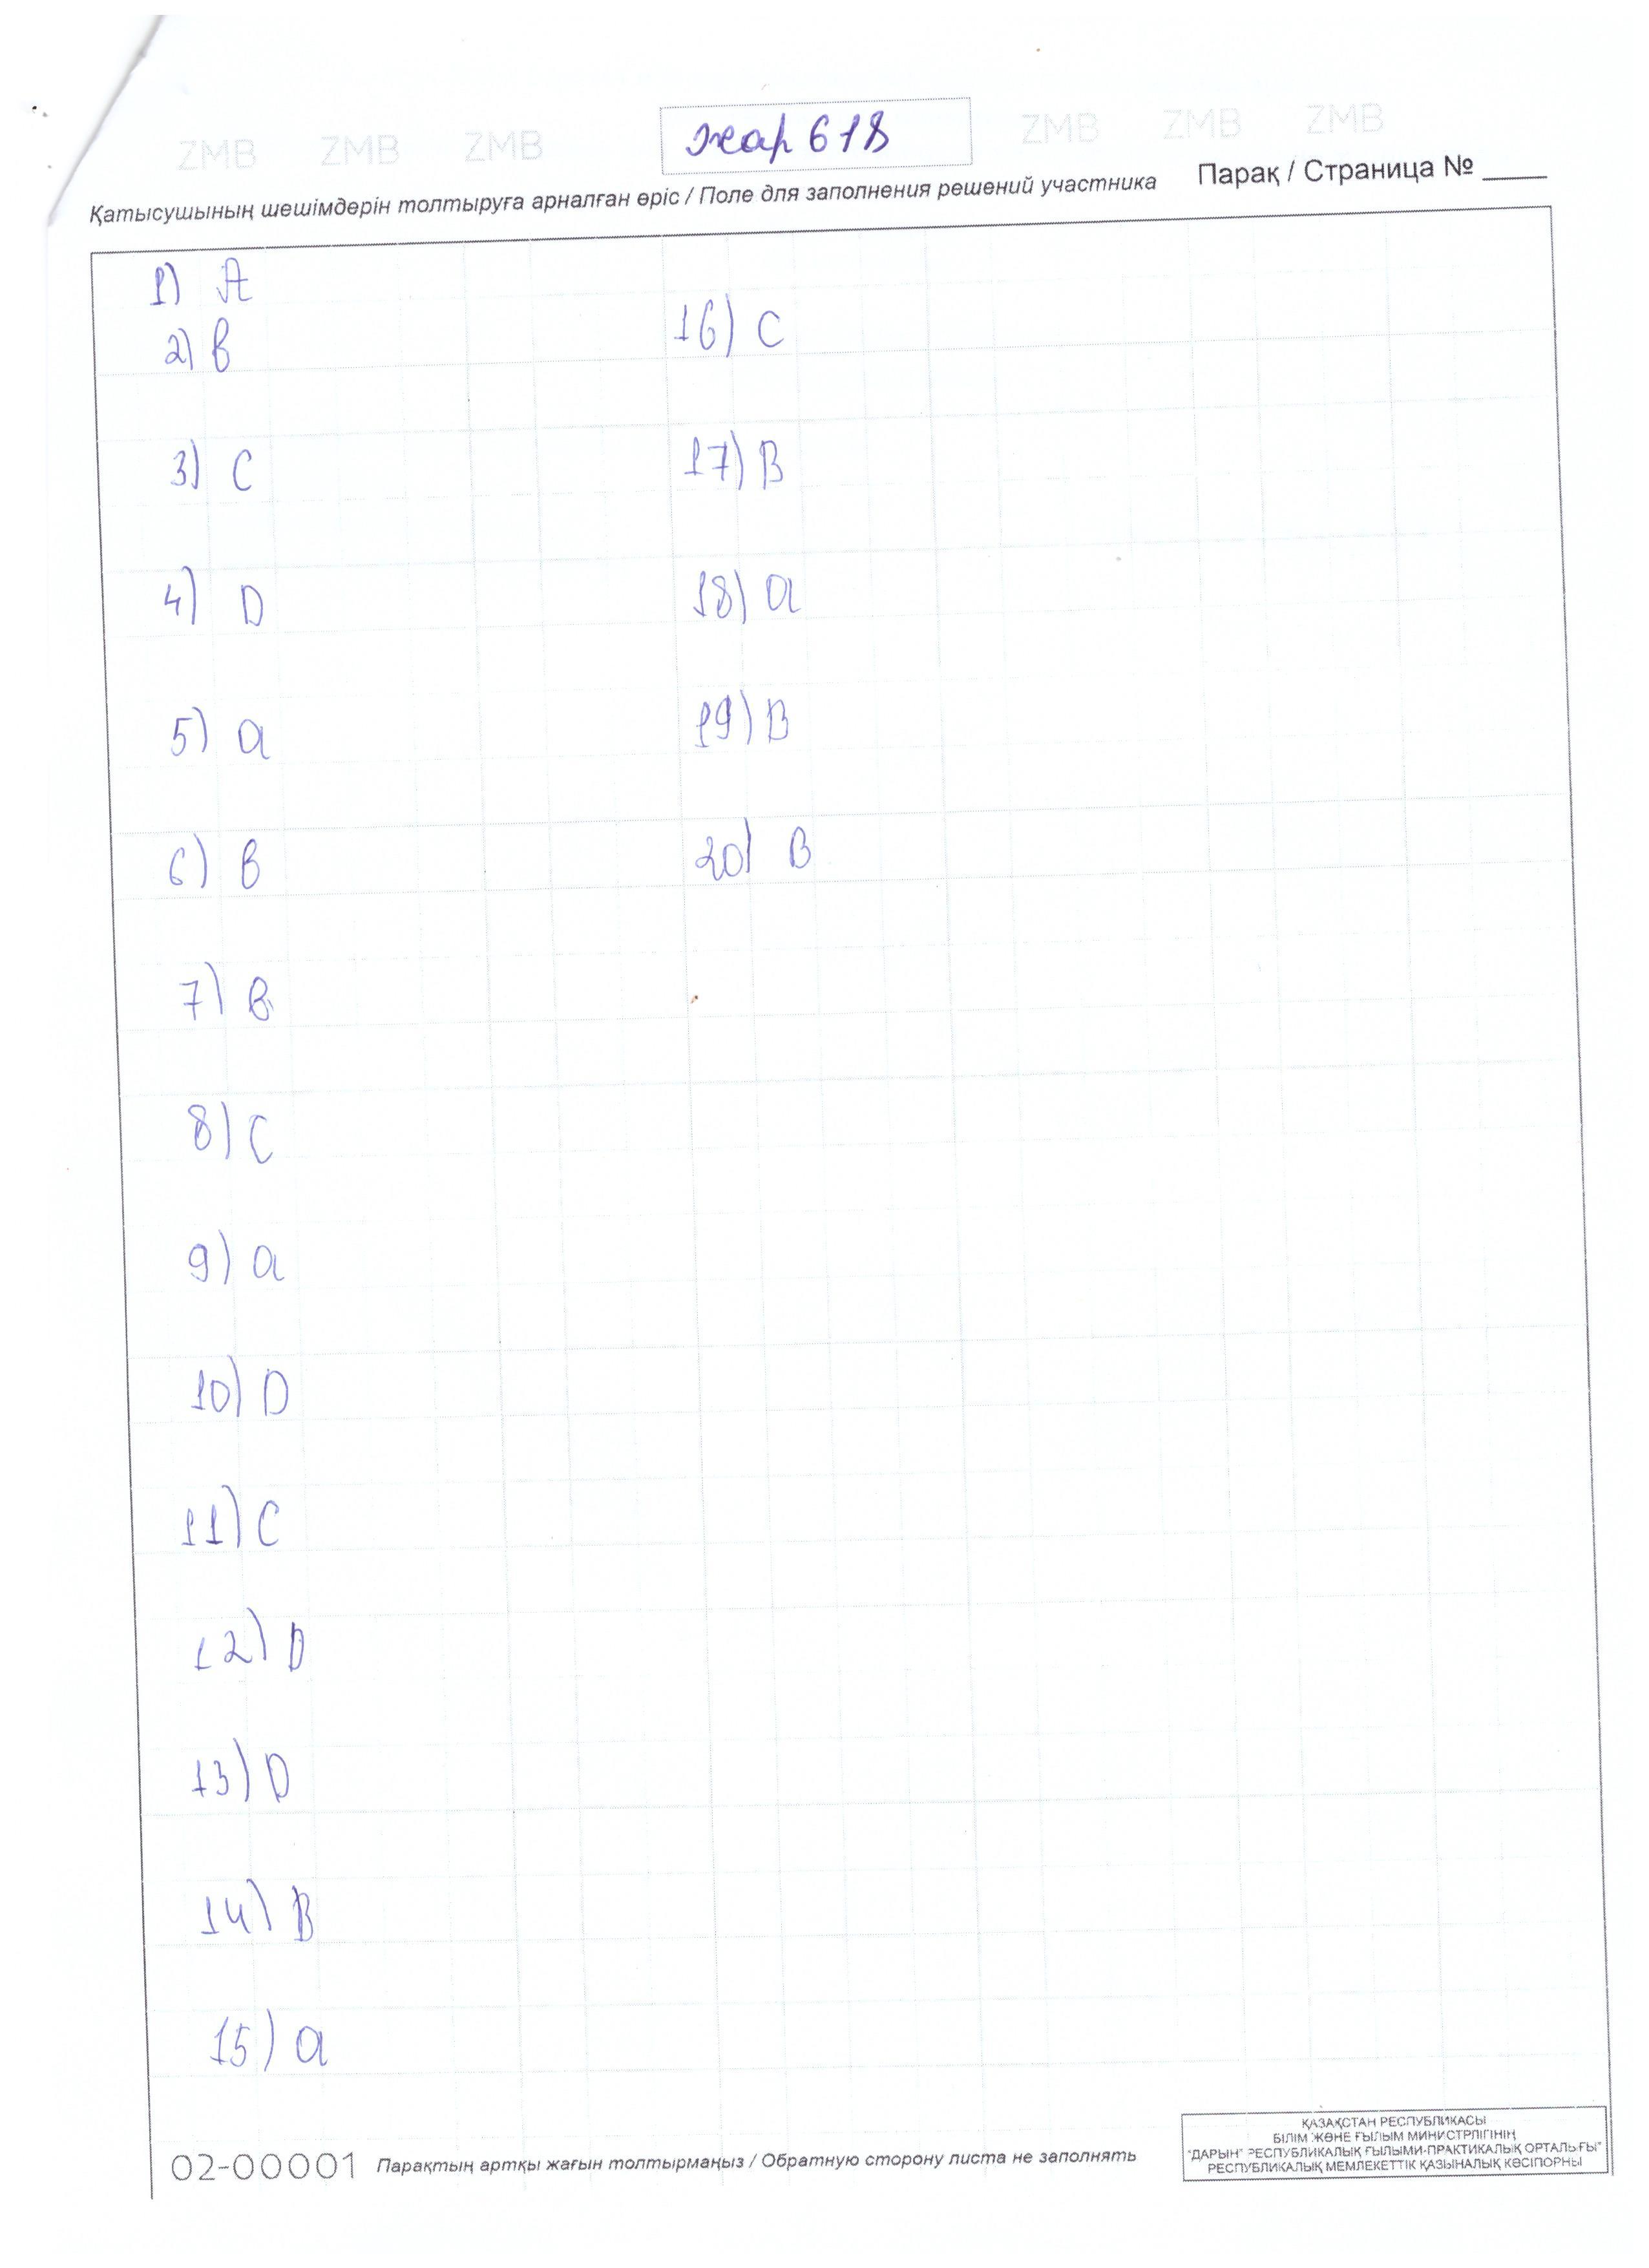 ZMB ZMB ZMB жар 618 ZMB ZMB ZMB
Қатысушының шешімдерін толтыруға арналған өріс / Поле для заполнения решений участника Парақ / Страница № ____
1) A
2) B
3) C
4) D
5) a
6) B
7) B
8) C
9) a
10) D
11) C
12) D
13) D
14) B
15) a
16) C
17) B
18) a
19) B
20) B
02-00001 Парақтың артқы жағын толтырмаңыз / Обратную сторону листа не заполнять
ҚАЗАҚСТАН РЕСПУБЛИКАСЫ
БІЛІМ ЖӘНЕ ҒЫЛЫМ МИНИСТРЛІГІНІҢ
"ДАРЫН" РЕСПУБЛИКАЛЫҚ ҒЫЛЫМИ-ПРАКТИКАЛЫҚ ОРТАЛЫҒЫ"
РЕСПУБЛИКАЛЫҚ МЕМЛЕКЕТТІК ҚАЗЫНАЛЫҚ КӘСІПОРНЫ